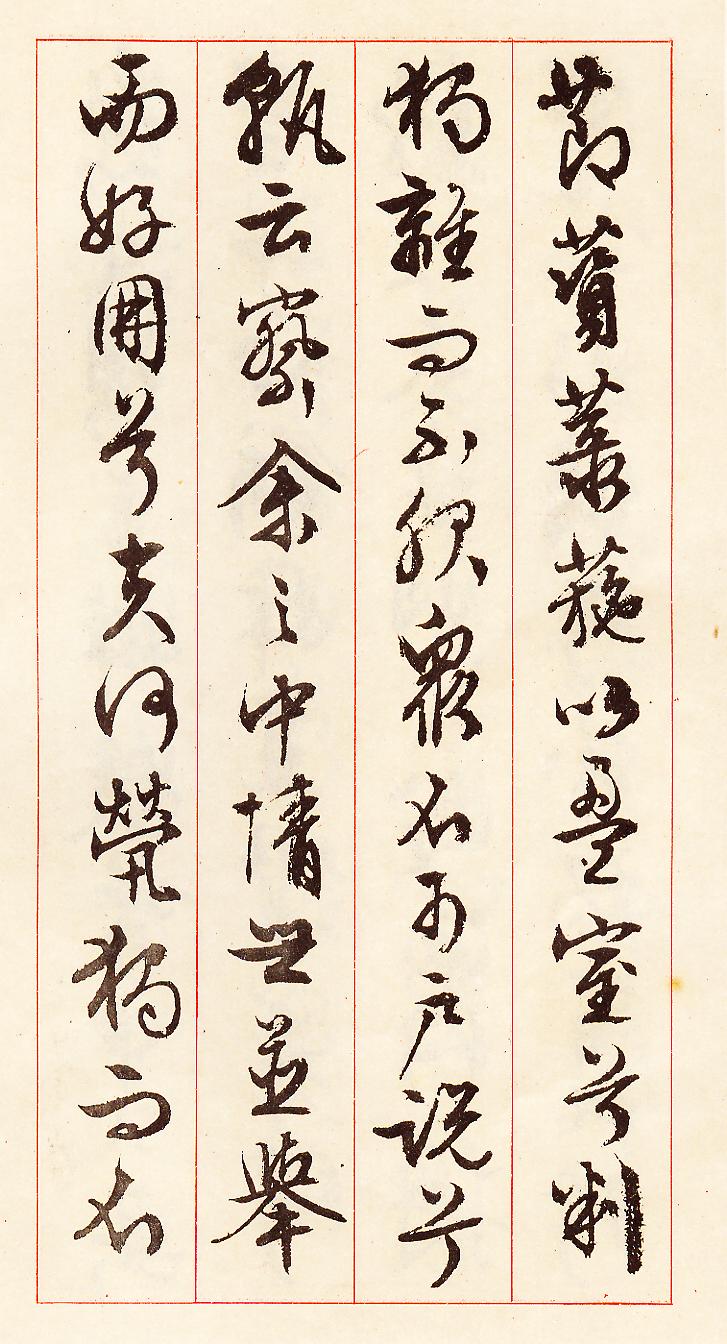 節薋菉葹以盈室兮判
獨離而不服眾不可戶說兮
孰云察余之中情世並舉
而好朋兮夫何煢獨而不